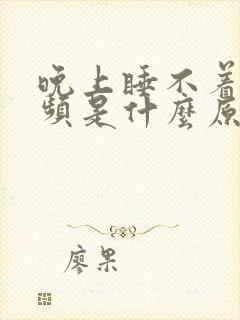 晚上睡不着
频是什麼原
廖果